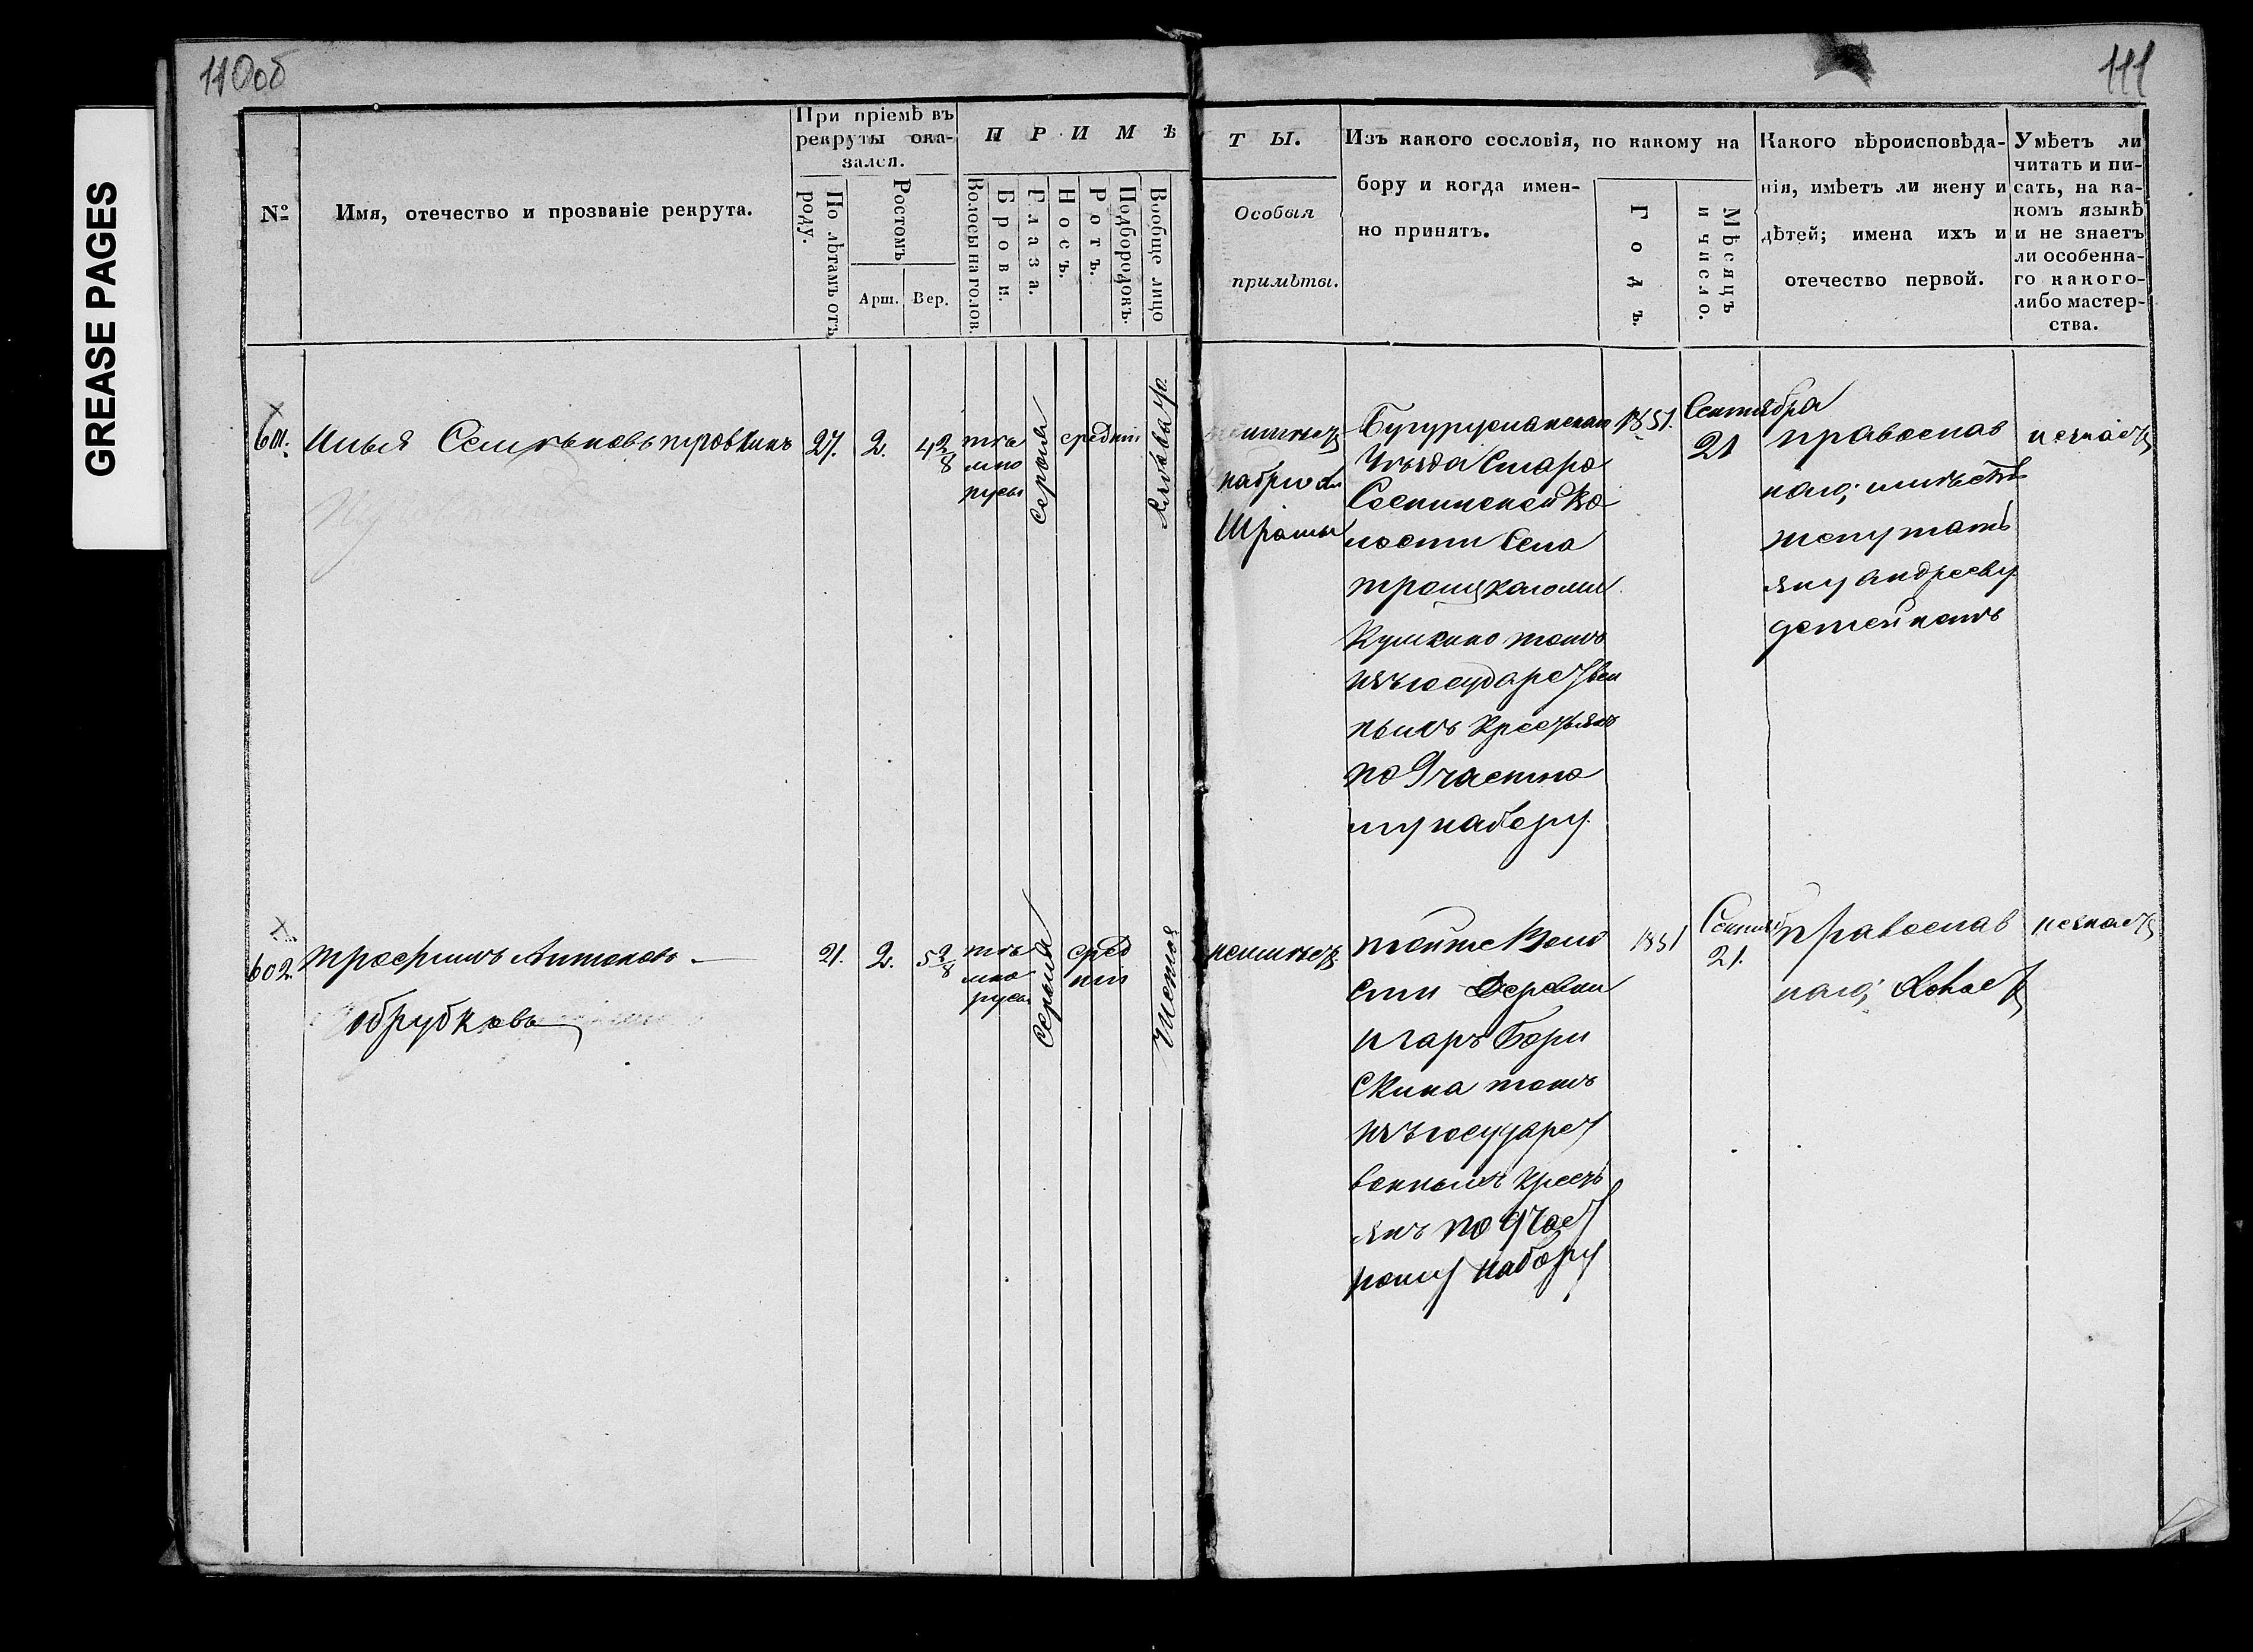 110об
111
GREASE PAGES
№
Имя, отечество и прозваніе рекрута.
При пріемѣ въ
рекруты ока-
зался.
По лѣтамъ отъ
роду.
Ростомъ
Арш.
Вер.
ПРИМѢ
Волосы на голов.
Брови.
Глаза.
Носъ.
Ротъ.
Подбородокъ.
Вообще лицо
ТЫ.
Особыя
примѣты.
Изъ какого сословія, по какому на
бору и когда имен-
но принятъ.
Годъ.
Мѣсяцъ
и число.
Какого вѣроисповѣда-
нія, имѣетъ ли жену и
дѣтей; имена ихъ и
отечество первой.
Умѣетъ ли
читать и пи-
сать, на ка-
комъ языкѣ
и не знаетъ
ли особенна-
го какого-
либо мастер-
ства.
601.
Илья Семеновъ
27.
2.
4 2/8
тем
но
русы
Серыя
средній
Рябова
неимѣетъ
шрамы
Бугурусланскаго
Уѣзда Старо
Соснинской Во
лости Села
троицкаго
тожъ
изъ государствен
ныхъ Крестьянъ
по 9 частно
му набору
1851.
Сентября
21
православ
наго; имѣетъ
жену татья
яну андрееву
детей нетъ
незнаетъ
602.
трофимъ Антоновъ
Обрубковъ
21.
2.
5 2/8
тем
но
русы
Серыя
сред
ній
Чистое
неимѣетъ
тойже Воло
сти Деревни
Бори
Скина тожъ
изъ государст
венныхъ Кресть
янъ по 9 част
ному набору
1851
Сентяб
21.
православ
наго; холостъ
незнаетъ